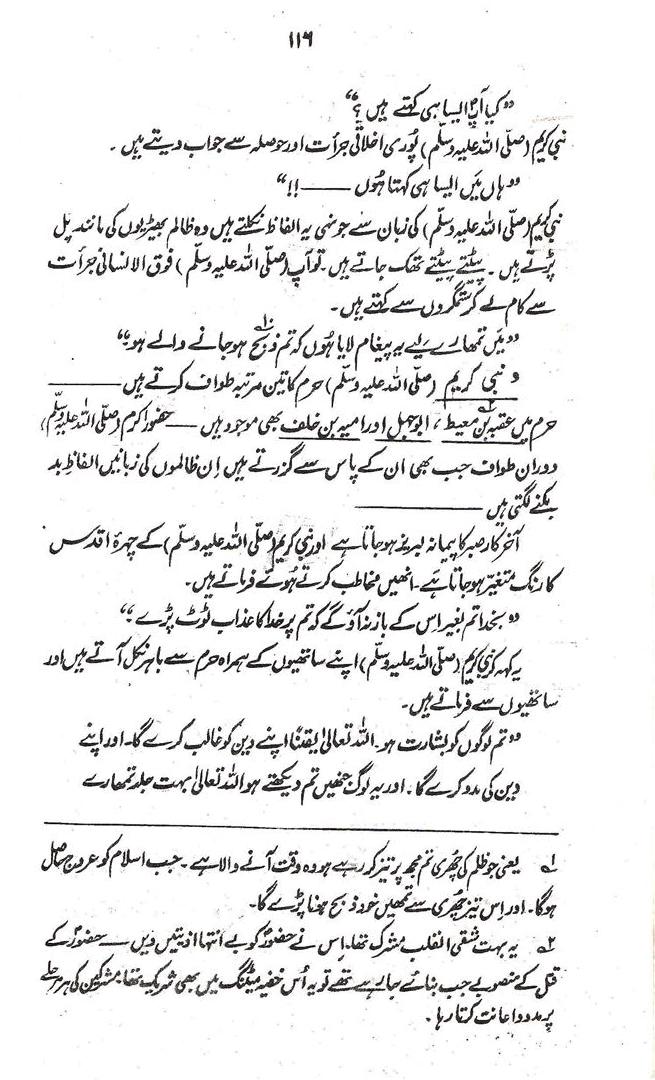 ۱۱۶
”کیا آپؐ ایسا ہی کہتے ہیں؟“
نبی کریم (صلّی اللہ علیہ وسلّم) پُوری اخلاقی جرأت اور حوصلہ سے جواب دیتے ہیں ۔
”ہاں مَیں ایسا ہی کہتا ہُوں ——— !!“
نبی کریم (صلّی اللہ علیہ وسلّم) کی زبان سے جونہی یہ الفاظ نکلتے ہیں وہ ظالم بھیڑیوں کی مانند پل
پڑتے ہیں ۔ پیٹتے پیٹتے تھک جاتے ہیں۔ تو آپ (صلّی اللہ علیہ وسلّم) فوق الانسانی جرأت
سے کام لے کر ستمگروں سے کہتے ہیں۔
”مَیں تمھارے لیے یہ پیغام لایا ہُوں کہ تم ذبح۱؎ ہو جانے والے ہو۔“
و نبی کریم (صلّی اللہ علیہ وسلّم) حرم کا تین مرتبہ طواف کرتے ہیں ———
حرم میں عقبہ بن۲؎ معیط ، ابوجہل اور امیہ بن خلف بھی موجود ہیں —— حضور اکرم (صلّی اللہ علیہ وسلّم)
دوران طواف جب بھی ان کے پاس سے گزرتے ہیں اِن ظالموں کی زبانیں الفاظِ بد
بکنے لگتی ہیں ———
آخر کار صبر کا پیمانہ لبریز ہو جاتا ہے اور نبی کریم (صلّی اللہ علیہ وسلّم) کے چہرۂ اقدس
کا رنگ متغیّر ہو جاتا ہے۔ انھیں مخاطب کرتے ہُوئے فرماتے ہیں۔
”بخدا تم بغیر اِس کے باز نہ آؤ گے کہ تم پر خدا کا عذاب ٹوٹ پڑے۔“
یہ کہہ کر نبی کریم (صلّی اللہ علیہ وسلّم) اپنے ساتھیوں کے ہمراہ حرم سے باہر نکل آتے ہیں اور
ساتھیوں سے فرماتے ہیں۔
”تم لوگوں کو بشارت ہو۔ اللہ تعالیٰ یقیناً اپنے دین کو غالب کرے گا۔ اور اپنے
دین کی مدد کرے گا۔ اور یہ لوگ جنھیں تم دیکھتے ہو اللہ تعالیٰ بہت جلد تمھارے
۱؎ یعنی جو ظلم کی چھُری تم مجھ پر تیز کر رہے ہو وہ وقت آنے والا ہے ۔ جب اسلام کو عروج حاصل
ہوگا۔ اور اِس تیز چھُری سے تمھیں خود ذبح ہونا پڑے گا۔
۲؎ یہ بہت شقی القلب مشرک تھا۔ اِس نے حضورؐ کو بے انتہا اذیتیں دیں —— حضورؐ کے
قتل کے منصوبے جب بنائے جا رہے تھے تو یہ اُس خفیہ میٹنگ میں بھی شریک تھا۔ مشرکین کی ہر مرحلے
پر مدد و اعانت کرتا رہا۔